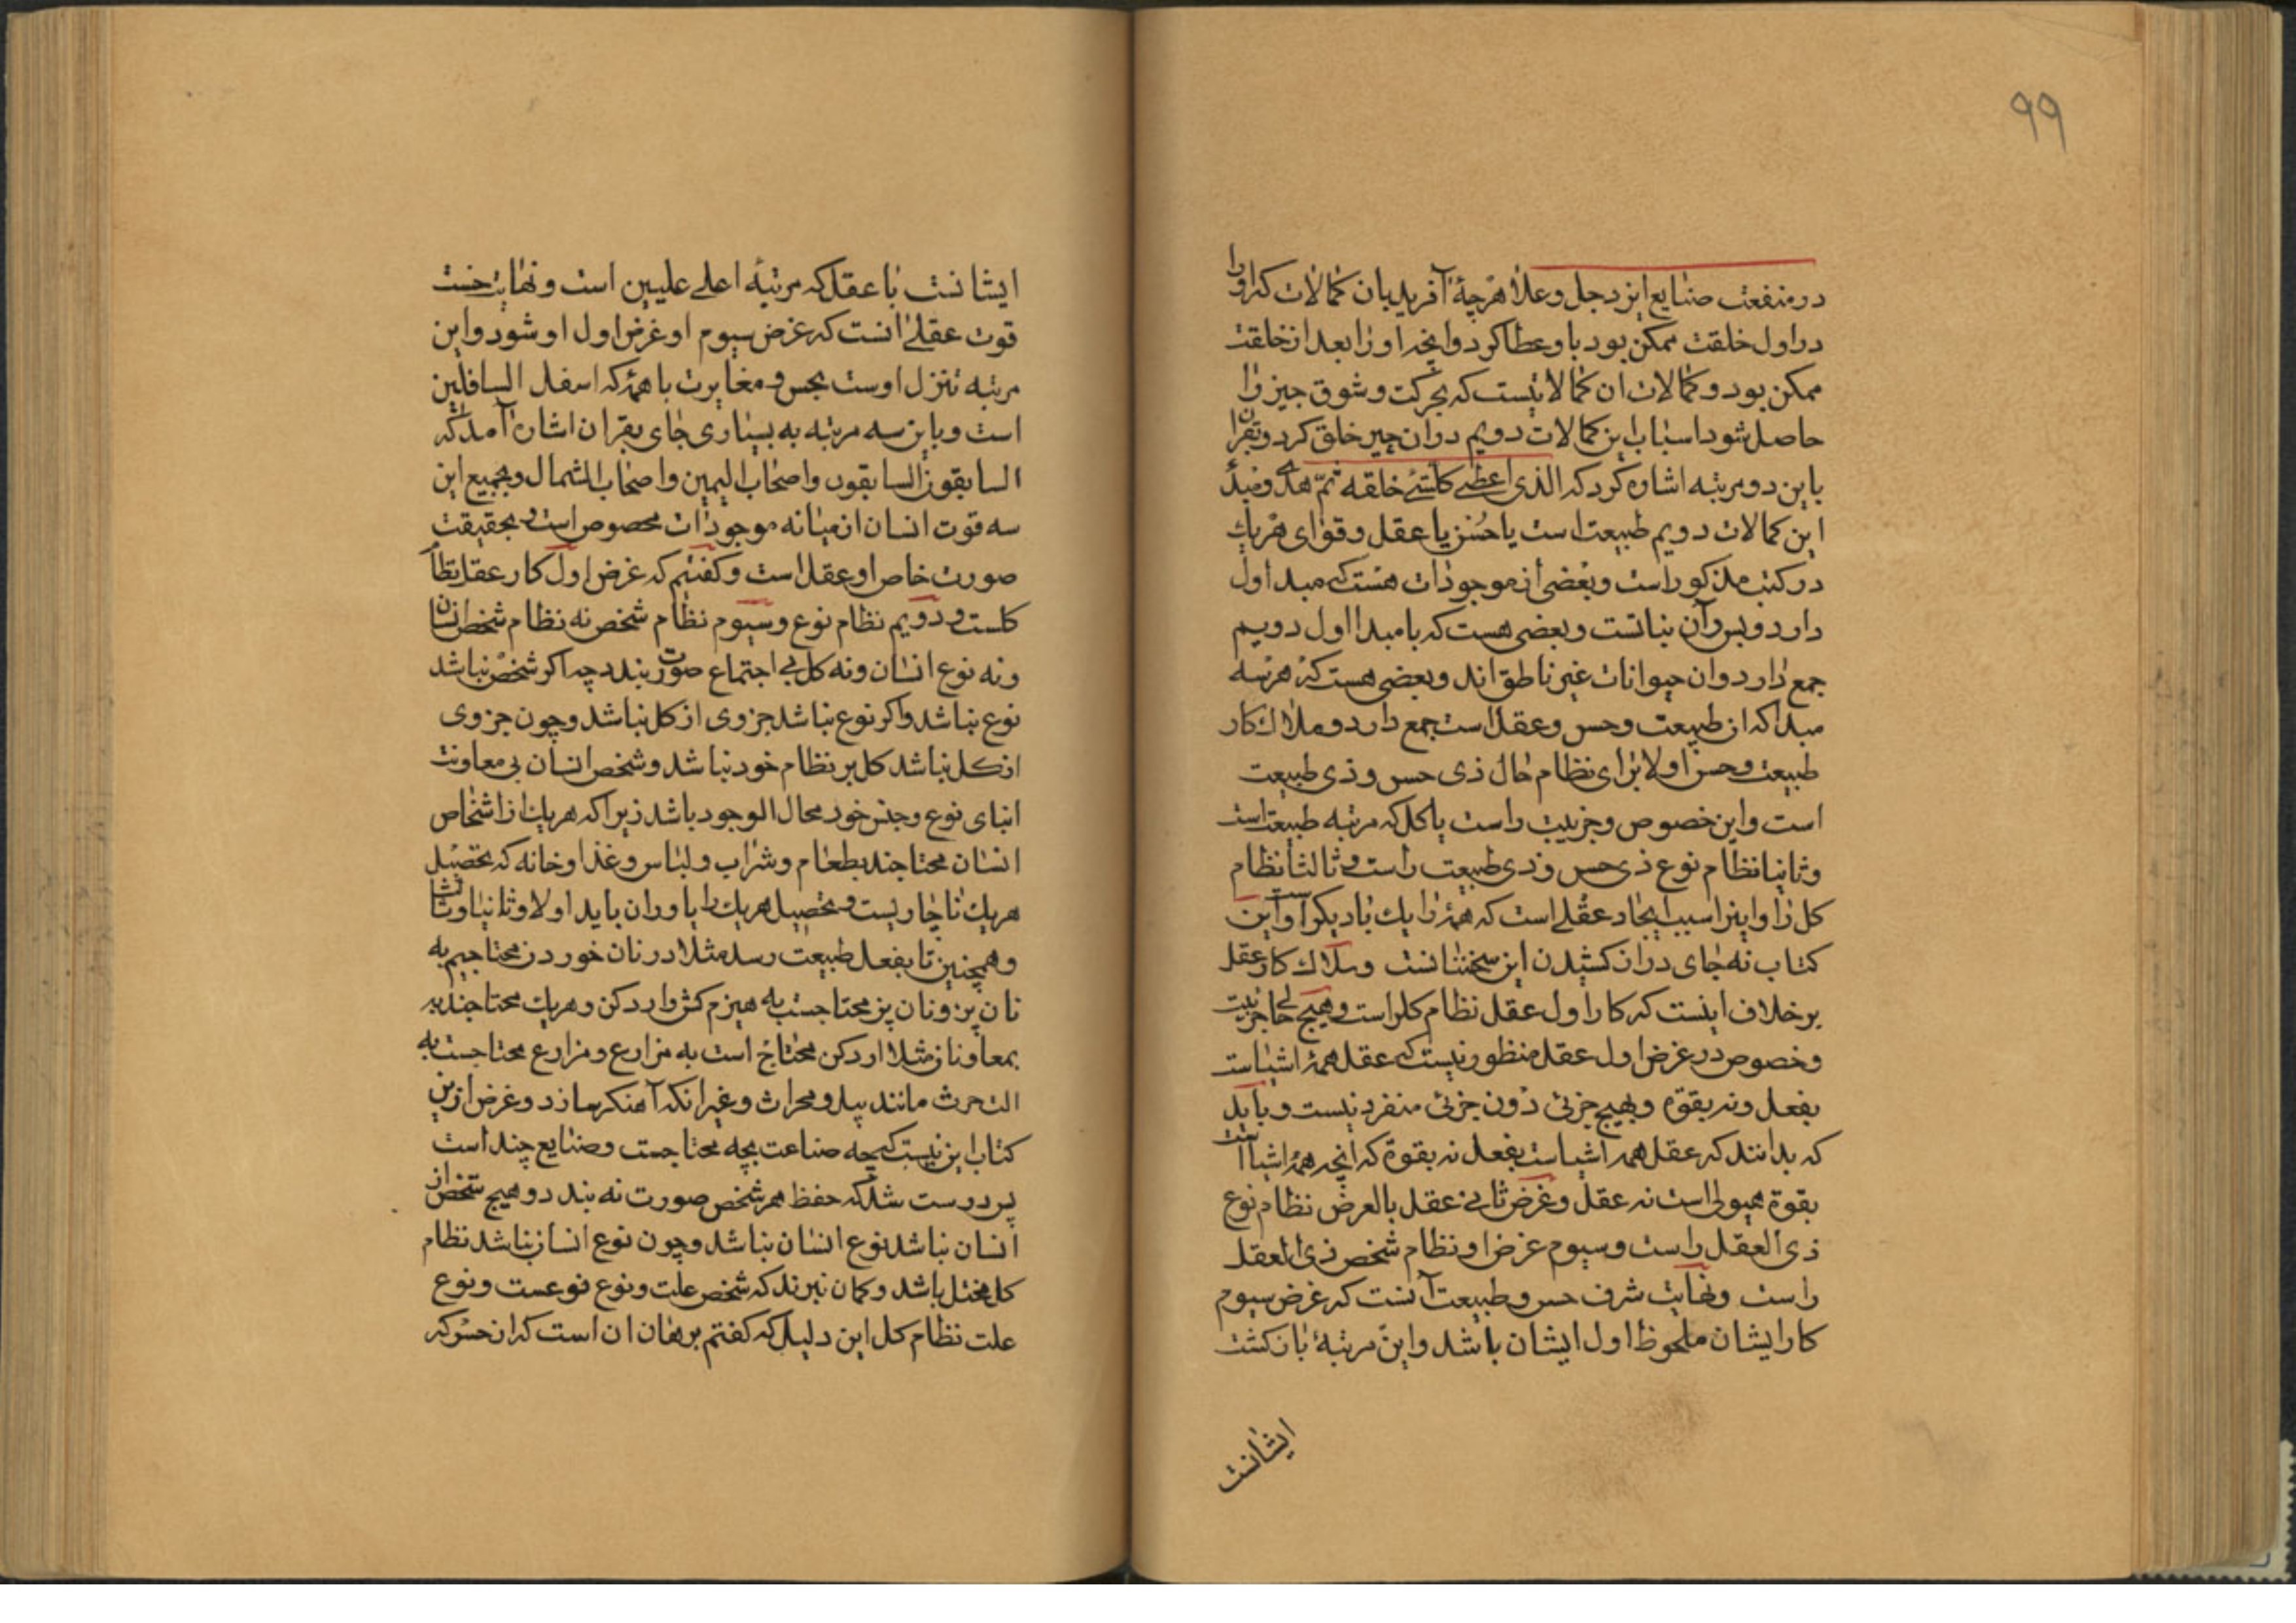 ۹۹
در منفعت صنایع ایزد جل وعلا هرچه آفرید بان کمالات که او را
در اول خلقت ممکن بود باو عطا کرد وانچه او را بعد از خلقت
ممکن بود و کمالات ان کمالاتیست که بحرکت و شوق چیز را
حاصل شود اسباب این کمالات دویم در ان چیز خلق کرد و بقران
باین دو مرتبه اشاره کرد که الذی اعطی کلشئ خلقه ثمّ هدی ومبدأ
این کمالات دویم طبیعت است یا حس یا عقل و قوای هریک
در کتب مذکور است وبعضی از موجودات هست که مبدا اول
دارد و بس وآن نباتست و بعضی هست که با مبدا اول دویم
جمع دارد وان حیوانات غیر ناطق اند وبعضی هست که هر سه
مبدا که ان طبیعت وحس وعقل است جمع دارد وملاک کار
طبیعت وحس اولا برای نظام حال ذی حس و ذی طبیعت
است واین خصوص وجزییت راست باکل که مرتبه طبیعتاست
وثانیا نظام نوع ذی حس وذی طبیعت راست و ثالثا نظام
کل را واینرا سبب ایجاد عقلے است که همه را یک باد یکر است واین
کتاب نه جای دراز کشیدن این سخنانست وملاک کار عقل
برخلاف اینست که کار اول عقل نظام کلراست وهیچ جزییت
وخصوص در غرض اول عقل منظور نیست که عقل همه اشیاست
بفعل ونه بقوة وبهیچ جزئی دون جزئی منفرد نیست و باید
که بدانند که عقل همه اشیاست بفعل نه بقوة که انچه همه اشیا است
بقوة هیولی است نه عقل وغرض ثانی عقل بالعرض نظام نوع
ذی العقل راست وسیوم غرض او نظام شخص ذی العقل
راست ونهایت شرف حس وطبیعت آنست که غرض سیوم
کار ایشان ملحوظ اول ایشان باشد واین مرتبۀ بازکشت
ایشانست
ایشانست با عقل که مرتبۀ اعلے علیین است ونهایت خست
قوت عقلے انست که غرض سیوم او غرض اول او شود واین
مرتبه تنزل اوست بحس و مغایرت با همه که اسفل السافلین
است وباین سه مرتبه به بسیاری جای بقران اشاره آمد که
السابقون السابقون واصحاب الیمین واصحاب الشمال وبجمیع این
سه قوت انسان از میانه موجودات مخصوص است و بحقیقت
صورت خاص او عقل است وکفتیم که غرض اول کار عقل نظام
کلست و دویم نظام نوع وسیوم نظام شخص نه نظام شخص انسان
ونه نوع انسان ونه کل بی اجتماع صورت بندد چه اکر شخص نباشد
نوع نباشد واکر نوع نباشد جزوی از کل نباشد وچون جزوی
از کل نباشد کل بر نظام خود نباشد وشخص انسان بی معاونت
ابنای نوع وجنس خود محال الوجود باشد زیرا که هریک از اشخاص
انسان محتاجند بطعام وشراب ولباس وغذا وخانه که بتحصیل
هریک ناچاریست وتحصیل هریک را یاوران باید اولا وثانیا وثالثا
وهمچنین تا بفعل طبیعت رسد مثلا در نان خوردن محتاجیم به
نان پز ونان پز محتاجست به هیزم کش وارد کن وهریک محتاجند
بمعاونان مثلا ارد کن محتاج است به مزارع ومزارع محتاجست به
الت حرث مانند بیل ومحراث وغیر انکه آهنکر سازد وغرض ازین
کتاب این نیست که چه صناعت بچه محتاجست وصنایع چند است
پس درست شد که حفظ هر شخص صورت نه بندد وهیچ شخص از
انسان نباشد نوع انسان نباشد وچون نوع انسان نباشد نظام
کل مختل باشد وکمان نبرند که شخص علت ونوع نوعست ونوع
علت نظام کل این دلیل که کفتم برهان ان است که از حس که